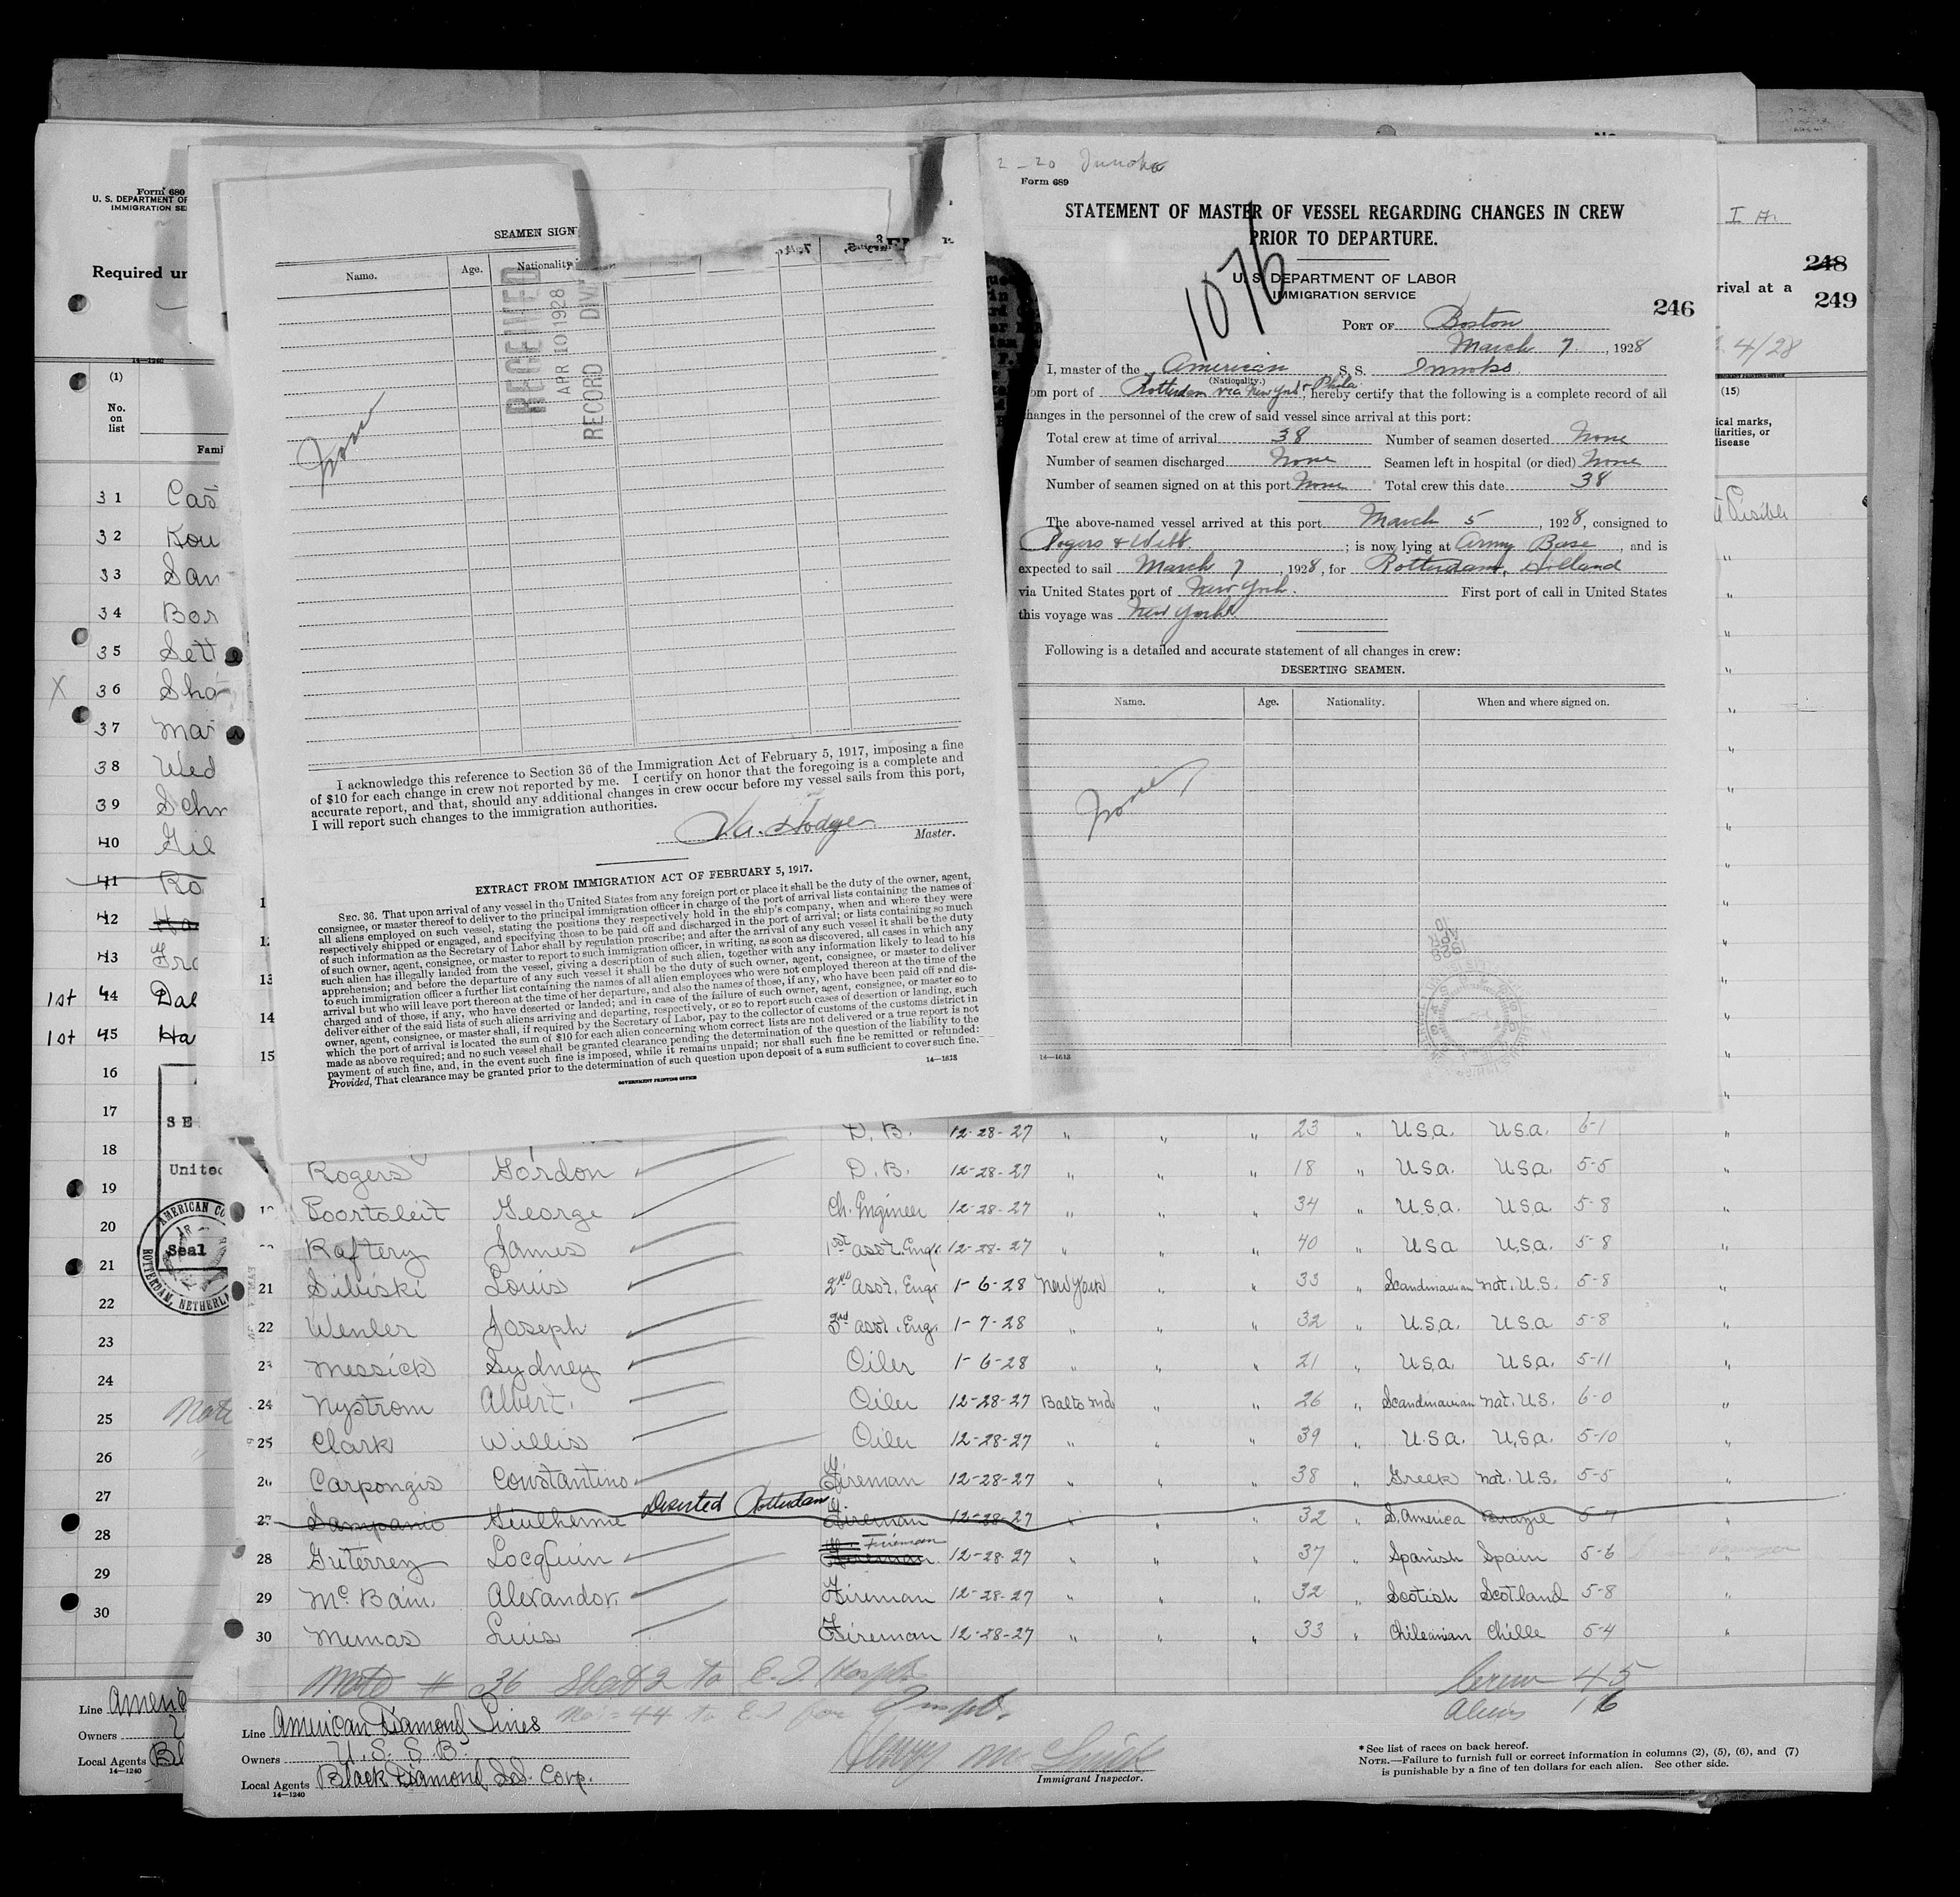 Form 680
U. S. DEPARTMENT OF
IMMIGRATION SE
Required un
14—1240
(1)
No.
on
list
Fami
31 Cas
32 Kou
33 San
34 Bor
35 Sett
X 36 Sha
37 Mar
38 Wed
39 Schn
40 Gil
41 Ro
42 Ha
43 Gra
1st 44 Dal
1st 45 Ha
16
17
18
19
20
21
22
23
24
25
26
27
28
29
30
SE
United
AMERICAN CO
Seal
ROTTERDAM, NETHERL
Note
Line Ameri
Owners
Local Agents Bl
14—1240
SEAMEN SIGN
Name. Age. Nationality
RECEIVED
APR 10 1928
RECORD DIVI
None
I acknowledge this reference to Section 36 of the Immigration Act of February 5, 1917, imposing a fine
of $10 for each change in crew not reported by me. I certify on honor that the foregoing is a complete and
accurate report, and that, should any additional changes in crew occur before my vessel sails from this port,
I will report such changes to the immigration authorities.
Hodge
Master.
EXTRACT FROM IMMIGRATION ACT OF FEBRUARY 5, 1917.
SEC. 36. That upon arrival of any vessel in the United States from any foreign port or place it shall be the duty of the owner, agent,
consignee, or master thereof to deliver to the principal immigration officer in charge of the port of arrival lists containing the names of
all aliens employed on such vessel, stating the positions they respectively hold in the ship's company, when and where they were
respectively shipped or engaged, and specifying those to be paid off and discharged in the port of arrival; or lists containing so much
of such information as the Secretary of Labor shall by regulation prescribe; and after the arrival of any such vessel it shall be the duty
of such owner, agent, consignee, or master to report to such immigration officer, in writing, as soon as discovered, all cases in which any
such alien has illegally landed from the vessel, giving a description of such alien, together with any information likely to lead to his
apprehension; and before the departure of any such vessel it shall be the duty of such owner, agent, consignee, or master to deliver
to such immigration officer a further list containing the names of all alien employees who were not employed thereon at the time of the
arrival but who will leave port thereon at the time of her departure, and also the names of those, if any, who have been paid off and dis-
charged and of those, if any, who have deserted or landed; and in case of the failure of such owner, agent, consignee, or master so to
deliver either of the said lists of such aliens arriving and departing, respectively, or so to report such cases of desertion or landing, such
owner, agent, consignee, or master shall, if required by the Secretary of Labor, pay to the collector of customs of the customs district in
which the port of arrival is located the sum of $10 for each alien concerning whom correct lists are not delivered or a true report is not
made as above required; and no such vessel shall be granted clearance pending the determination of the question of the liability to the
payment of such fine, and, in the event such fine is imposed, while it remains unpaid; nor shall such fine be remitted or refunded:
Provided, That clearance may be granted prior to the determination of such question upon deposit of a sum sufficient to cover such fine.
14—1613
GOVERNMENT PRINTING OFFICE
2-20 Innoko
Form 689
STATEMENT OF MASTER OF VESSEL REGARDING CHANGES IN CREW
PRIOR TO DEPARTURE.
1076
U. S. DEPARTMENT OF LABOR
IMMIGRATION SERVICE
246
PORT OF Boston
March 7, 1928
I, master of the American S. S. Innoko
(Nationality.)
om port of Rotterdam via New York & Phila, hereby certify that the following is a complete record of all
hanges in the personnel of the crew of said vessel since arrival at this port:
Total crew at time of arrival 38 Number of seamen deserted None
Number of seamen discharged None Seamen left in hospital (or died) None
Number of seamen signed on at this port None Total crew this date 38
The above-named vessel arrived at this port March 5, 1928, consigned to
Rogers & Webb; is now lying at Army Base, and is
expected to sail March 7, 1928, for Rotterdam, Holland
via United States port of New York. First port of call in United States
this voyage was New York.
Following is a detailed and accurate statement of all changes in crew:
DESERTING SEAMEN.
Name. Age. Nationality. When and where signed on.
None
APR 10 1928
14—1613
I A.
rival at a
248
249
4/28
(15)
ical marks,
liarities, or
disease
Visible
1
1
13
14
15
D. B. 12-28-27 " " " 23 " U.S.A. U.S.A. 6-1 "
Rogers Gordon D.B. 12-28-27 " " " 18 " U.S.A. U.S.A. 5-5 "
Poortoleit George Ch. Engineer 12-28-27 " " " 34 " U.S.A. U.S.A. 5-8 "
Raftery James 1st Asst. Engr. 12-28-27 " " " 40 " U.S.A U.S.A. 5-8 "
21 Sibiski Louis 2nd Asst. Engr 1-6-28 New York " " 33 " Scandinavian Nat. U.S. 5-8 "
22 Wenler Joseph 3rd Asst. Eng. 1-7-28 " " " 32 " U.S.A. U.S.A 5-8 "
23 Messick Sydney Oiler 1-6-28 " " " 21 " U.S.A. U.S.A. 5-11 "
24 Nystrom Albert. Oiler 12-28-27 Balto Md " " 26 " Scandinavian Nat. U.S. 6-0 "
25 Clark Willis Oiler 12-28-27 " " " 39 " U.S.A. U.S.A. 5-10 "
26 Carpongis Constantino Fireman 12-28-27 " " " 38 " Greek Nat. U.S. 5-5 "
Deserted Rotterdam
27 Sampanio Giulherme Fireman 12-28-27 " " " 32 " S. America Brazie 5-7 "
28 Guterrez Locquin Fireman Fireman. 12-28-27 " " " 37 " Spanish Spain 5-6 "
29 McBain Alexandor. Fireman 12-28-27 " " " 32 " Scotish Scotland 5-8 "
30 Munas Luis Fireman 12-28-27 " " " 33 " Chileanian Chille 5-4 "
Note # 36 Sheet 2 to E.I. Hospt. Crew 45
No. 44 to E.I for Inspt. Aliens 16
Line American Diamond Lines
Owners U.S.S.B.
Local Agents Black Diamond S.S. Corp.
14—1240
Henry
Immigrant Inspector.
* See list of races on back hereof.
NOTE.—Failure to furnish full or correct information in columns (2), (5), (6), and (7)
is punishable by a fine of ten dollars for each alien. See other side.